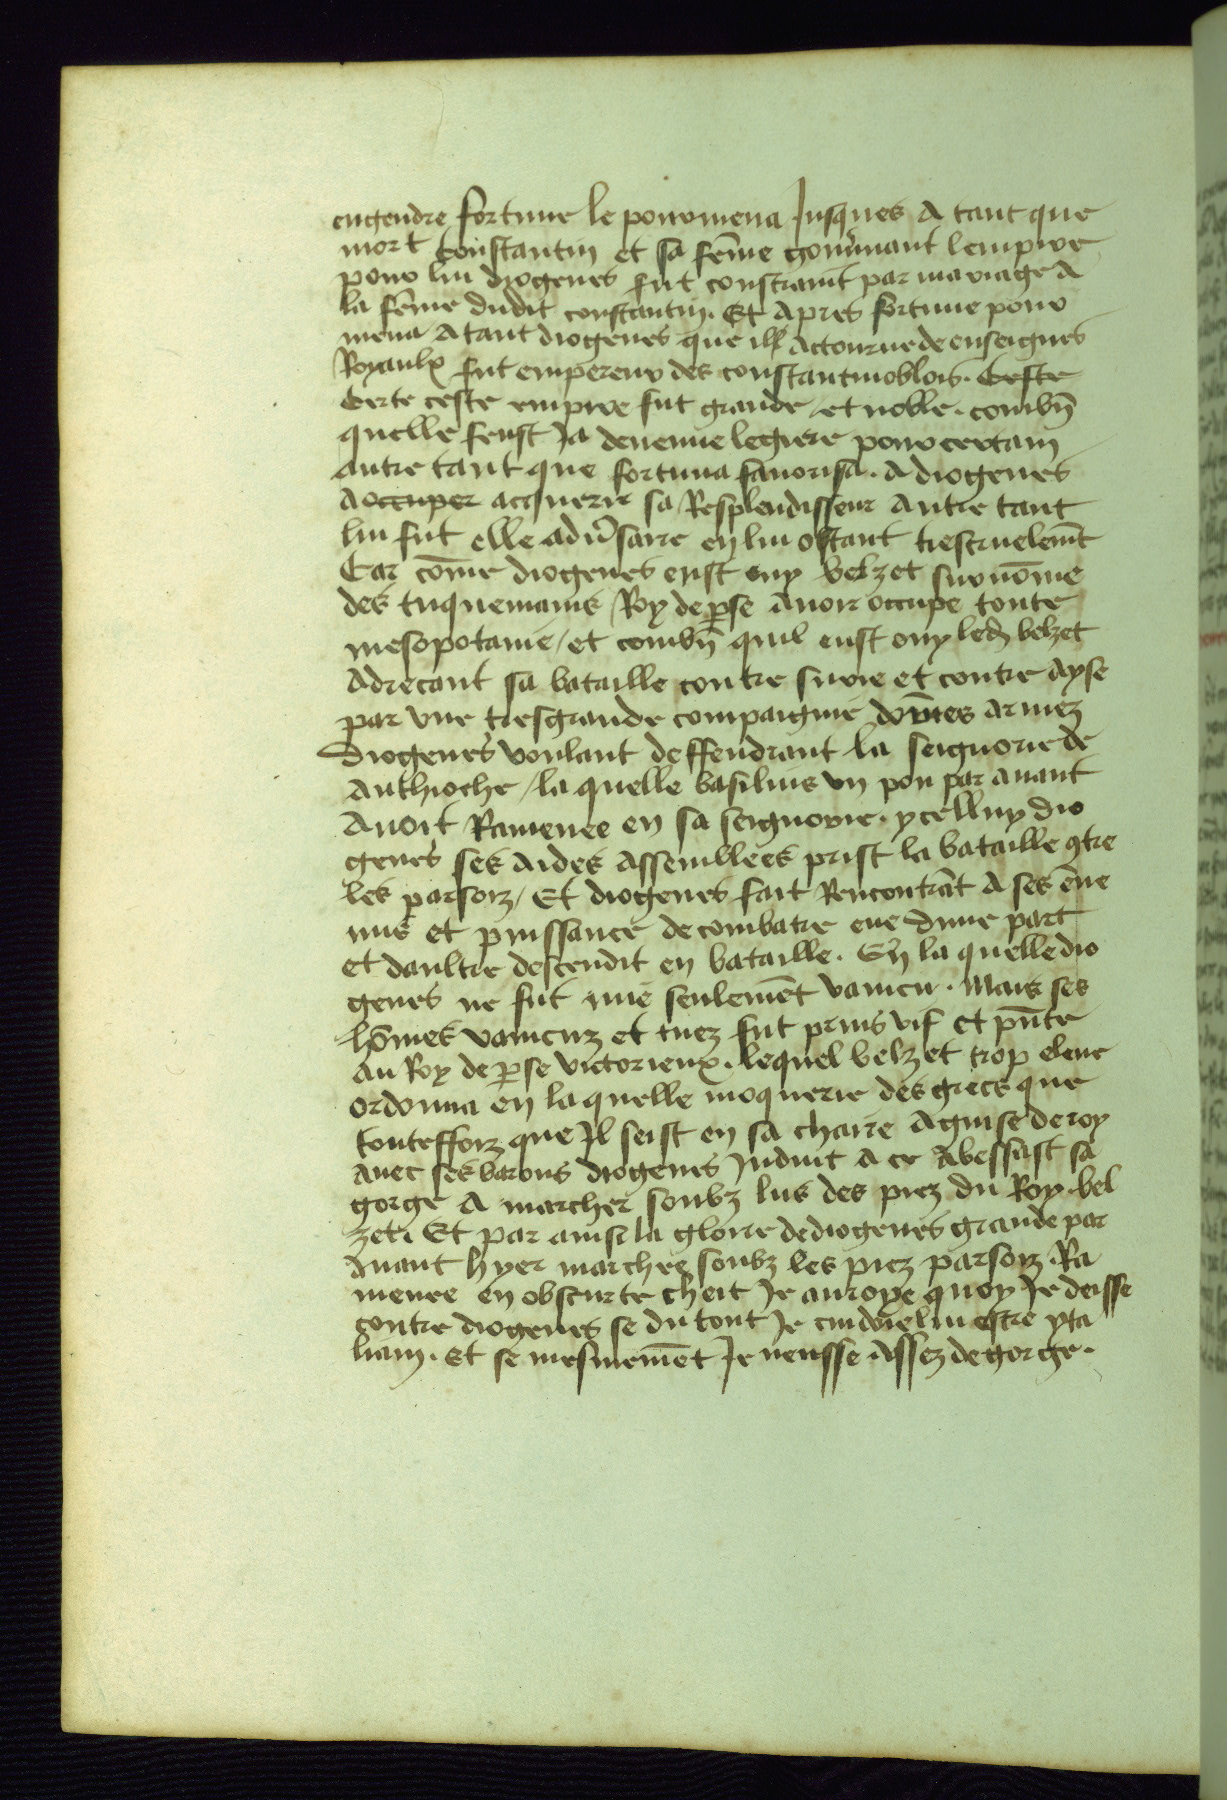 engendre fortune le pourmena Jusques A tant que
mort constantin et sa fēme gouũnant lempire
pour lui diogenes fut constraint par mariage A
la fēme dudit constantin. Et Apres fortune pour
mena A tant diogenes que ill Actourne de enseignes
Royaulx fut empereur des constantinoblois. Ceste
Certe ceste empire fut grande / et noble. combn̄
quelle feust Ja devenue legiere pour certain
autre tant que fortuna favorisa. A diogenes
Aoccuper acquerir sa Resplendisseur Autre tant
lui fut elle adũsaire en lui ostant trescruelemt̄
Car cōme diogenes eust ouy belzet surnōme
des tuquemanis Roy de pse Avoir occupe toute
mesopotamie / et combn̄ quil eust ouy led belzet
Adrecant sa bataille contre surie et contre Ayse
par vne tresgrande compaignie dom̄es armez
Diogenes voulant deffendrant la seignorie de
Anthioche / la quelle basilius vn pou par avant
Avoit Ramenee en sa seignorie. ycelluy dio
genes ses Aides Assemblees prist la bataille ꝯtre
les parsoiz / Et diogenes fait Rencontrāt A ses ēne
mis et puissance de combatre eue dune part
et daultre descendit en bataille. En la quelle dio
genes ne fut mie seulemēt vaincu. Mais ses
hōmes vaincuz et tuez fut prins vif et pn̄te
Au Roy de pse victorieux. lequel belzet trop eleue
ordonna en la quelle moquerie des grecs que
touteffoiz que Jl seist en sa chaire Aguise de roy
avec ses barons diogenes Induit A ce Abessast sa
gorge A marcher soubz lus des piez du Roy bel
zet. Et par ainsi la gloire de diogenes grande par
Avant hyer marchee soubz les piez parsoiz Ra
menee en obscurte cheit Je auroye quoy Je deisse
contre diogenes se du tout Je cuidoie lui estre yta
liain. Et se mesmemēt Je neusse Assez de gorge.